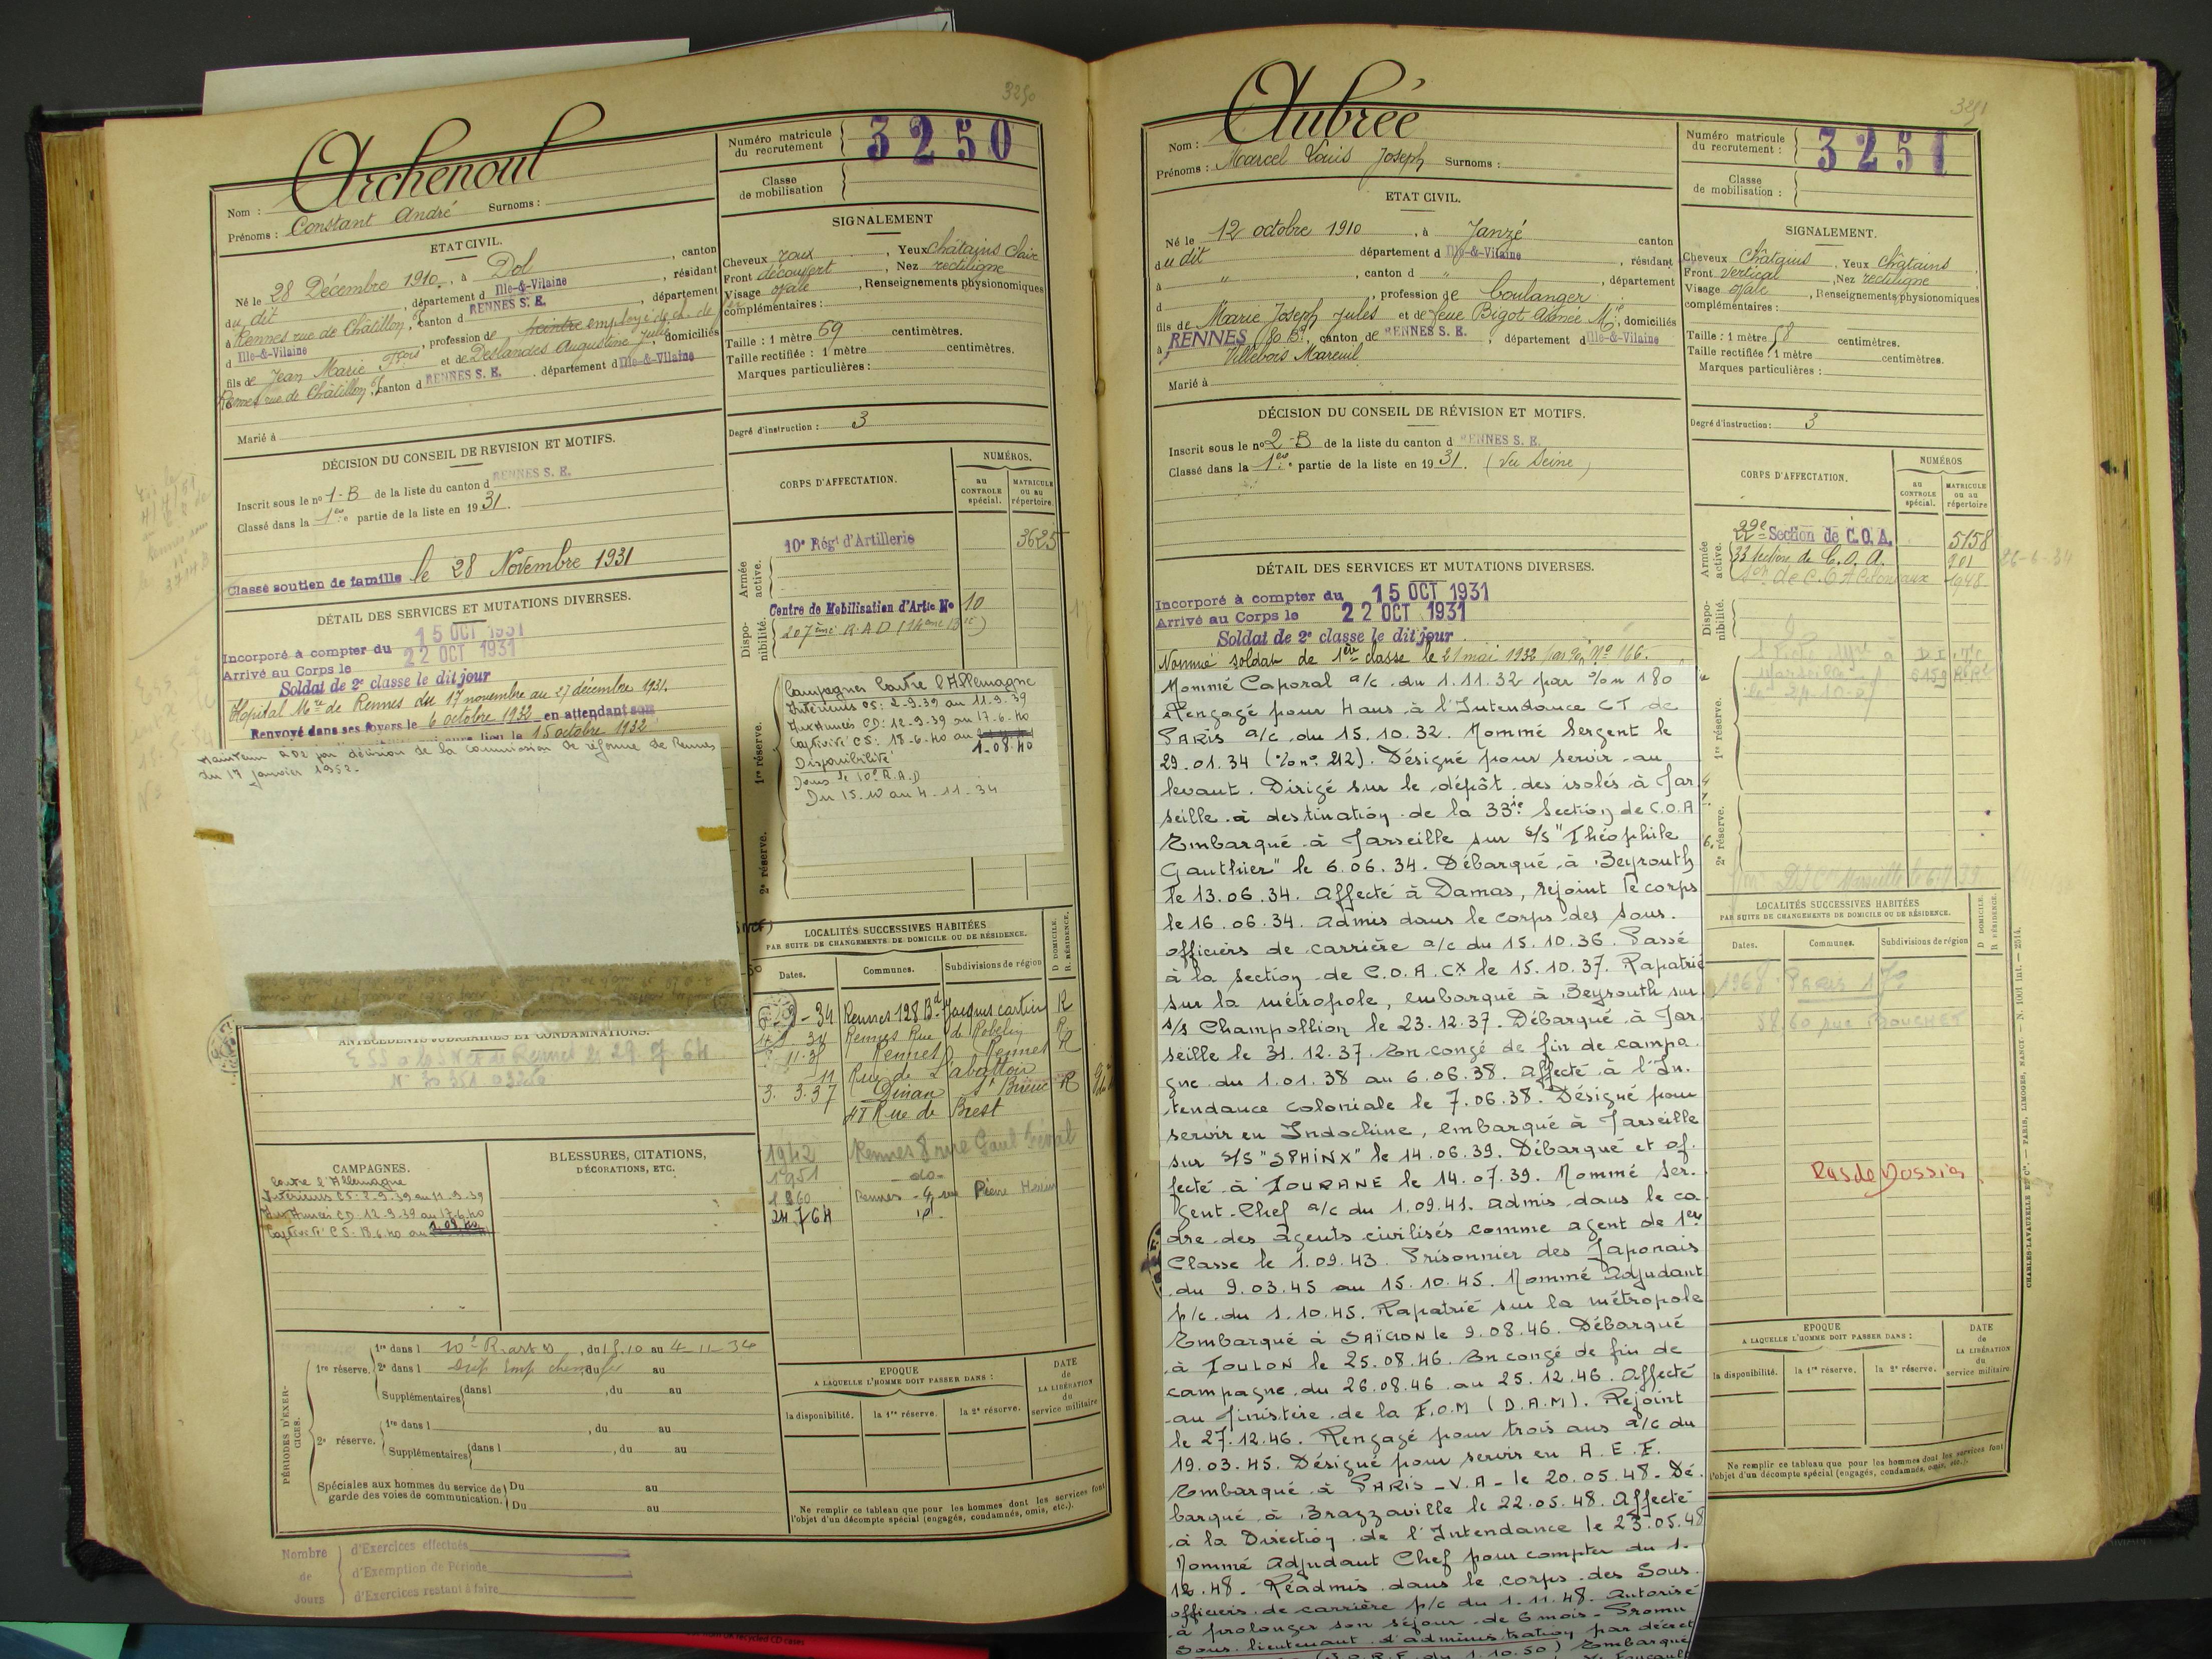 3250
Archenoul
Nom :
Prénoms : Constant André Surnoms :
Numéro matricule du recrutement 3250
Classe de mobilisation
ETAT CIVIL.
Né le 28 Décembre 1910, à Dol, canton
du dit, département d Ille-&-Vilaine, résidant
à Rennes rue de Châtillon, canton d RENNES S. E., département
d Ille-&-Vilaine, profession de peintre employé de ch. de fer
fils de Jean Marie Fçois et de Deslandes Augustine Julie, domiciliés
à Rennes rue de Châtillon, canton d RENNES S. E. département d Ille-&-Vilaine
Marié à
SIGNALEMENT
Cheveux roux, Yeux châtains clair
Front découvert, Nez rectiligne
Visage ovale, Renseignements physionomiques
complémentaires :
Taille : 1 mètre 69 centimètres.
Taille rectifiée : 1 mètre centimètres.
Marques particulières :
Degré d'instruction : 3
DÉCISION DU CONSEIL DE REVISION ET MOTIFS.
Inscrit sous le n° 1-B de la liste du canton d RENNES S. E.
Classé dans la 1ère partie de la liste en 1931.
Classé soutien de famille le 28 Novembre 1931
DÉTAIL DES SERVICES ET MUTATIONS DIVERSES.
Incorporé à compter du 15 OCT 1931
Arrivé au Corps le 22 OCT 1931
Soldat de 2e classe le dit jour
Hôpital Mre de Rennes du 17 novembre au 27 décembre 1931.
Renvoyé dans ses foyers le 6 octobre 1932 en attendant son
lieu le 15 octobre 1932
Maintenu à D2 par décision de la commission de réforme de Rennes
du 17 janvier 1952.
CORPS D'AFFECTATION.
NUMÉROS.
au CONTROLE spécial.
MATRICULE ou au répertoire.
Armée active.
10e Régt d'Artillerie 3625
Disponibilité.
Centre de Mobilisation d'Artie No 10
207ème R.A.D (14ème Bie)
1re réserve.
2e réserve.
Campagnes Contre l'Allemagne
Intérieurs CS: 2-9-39 au 11-9-39
Aux Armées CD: 12-9-39 au 17-6-40
Captivité CS: 18-6-40 au
1-08-40
Disponibilité
Dans le 10e R.A.D
Du 15-10 au 4-11-34
LOCALITÉS SUCCESSIVES HABITÉES
PAR SUITE DE CHANGEMENTS DE DOMICILE OU DE RÉSIDENCE.
Dates. Communes. Subdivisions de région D DOMICILE. R. RÉSIDENCE.
34 Rennes 128 Bd Jacques Cartier R
34 Rennes Rue de Robelin R
11.3 Rennes Rennes R
11 Rue de l'abattoir
3.3.37 Dinan St Brieuc R
48 Rue de Brest
1942 Rennes
1951 -do-
1860 Rennes - 9 rue Pierre
24 7 64 id.
ANTÉCÉDENTS JUDICIAIRES ET CONDAMNATIONS.
CAMPAGNES.
Contre l'Allemagne
Intérieurs CS: 2-9-39 au 11-9-39
Aux Armées CD 12-9-39 au 17-6-40
Captivité CS: 18-6-40 au
BLESSURES, CITATIONS,
DÉCORATIONS, ETC.
PÉRIODES D'EXERCICES.
1re réserve.
1re dans l 10e R. art D, du 15.10 au 4-11-34
2e dans l, du au
Supplémentaires dans l, du au
2e réserve.
1re dans l, du au
Supplémentaires dans l, du au
Spéciales aux hommes du service de garde des voies de communication.
Du au
Du au
EPOQUE
A LAQUELLE L'HOMME DOIT PASSER DANS :
la disponibilité. la 1re réserve. la 2e réserve.
DATE de LA LIBÉRATION du service militaire
Ne remplir ce tableau que pour les hommes dont les services font
l'objet d'un décompte spécial (engagés, condamnés, omis, etc.).
Nombre de Jours
d'Exercices effectués
d'Exemption de Période
d'Exercices restant à faire
3251
Aubrée
Nom :
Prénoms : Marcel Louis Joseph Surnoms :
Numéro matricule du recrutement : 3251
Classe de mobilisation :
ETAT CIVIL.
Né le 12 octobre 1910, à Janzé canton
du dit département d Ille-&-Vilaine, résidant
à ", canton d ", département
d, profession de boulanger
fils de Marie Joseph Jules et de feue Bigot Aimée Mie, domiciliés
à RENNES 80 Bd, canton de RENNES S. E., département d Ille-&-Vilaine
Villebois Mareuil
Marié à
SIGNALEMENT.
Cheveux châtains, Yeux châtains,
Front vertical, Nez rectiligne
Visage ovale, Renseignements physionomiques
complémentaires :
Taille : 1 mètre 58 centimètres.
Taille rectifiée : 1 mètre centimètres.
Marques particulières :
Degré d'instruction : 3
DÉCISION DU CONSEIL DE RÉVISION ET MOTIFS.
Inscrit sous le n° 2-B de la liste du canton d RENNES S. E.
Classé dans la 1ère partie de la liste en 1931. (Vu Seine)
DÉTAIL DES SERVICES ET MUTATIONS DIVERSES.
Incorporé à compter du 15 OCT 1931
Arrivé au Corps le 22 OCT 1931
Soldat de 2e classe le dit jour
Nommé soldat de 1ère classe le 21 mai 1932 par No 166.
Nommé Caporal a/c du 1.11.32 par o/n 180
Rengagé pour 4 ans à l'Intendance CT de
PARIS a/c du 15.10.32. Nommé Sergent le
29.01.34 (o/no 212). Désigné pour servir au
levant. Dirigé sur le dépôt des isolés à Mar
seille à destination de la 33ie Section de C.O.A
Embarqué à Marseille sur S/S "Théophile
Gauthier" le 6.06.34. Débarqué à Beyrouth
le 13.06.34. Affecté à Damas, rejoint le corps
le 16.06.34. Admis dans le corps des sous.
officiers de carrière a/c du 15.10.36. Passé
à la section de C.O.A. Cx le 15.10.37. Rapatrié
sur la métropole, embarqué à Beyrouth sur
s/s Champollion le 23.12.37. Débarqué à Mar
seille le 31.12.37. En congé de fin de campa.
gne du 1.01.38 au 6.06.38. Affecté à l'In.
tendance coloniale le 7.06.38. Désigné pour
servir en Indochine, embarqué à Marseille
sur S/S "SPHINX" le 14.06.39. Débarqué et af.
fecté à TOURANE le 14.07.39. Nommé Ser.
gent-Chef a/c du 1.09.41. Admis dans le ca
dre des agents civilisés comme agent de 1ère
Classe le 1.09.43. Prisonnier des Japonais
du 9.03.45 au 15.10.45. Nommé Adjudant
p/c du 1.10.45. Rapatrié sur la métropole
Embarqué à SAÏGON le 9.08.46. Débarqué
à TOULON le 25.08.46. En congé de fin de
campagne du 26.08.46 au 25.12.46. Affecté
au Ministère de la F.O.M (D.A.M). Rejoint
le 27.12.46. Rengagé pour trois ans a/c du
19.03.45. Désigné pour servir en A.E.F.
Embarqué à PARIS - V.A - le 20.05.48 - Dé.
barqué à Brazzaville le 22.05.48. Affecté
à la Direction de l'Intendance le 23.05.48
Nommé Adjudant Chef pour compter du 1.
12.48. Réadmis dans le corps des Sous.
officiers de carrière p/c du 1.11.48. Autorisé
à prolonger son séjour de 6 mois - Promu
Sous-lieutenant d'administration par décret
(J.O.R.F. du 1.10.50) Embarqué
CORPS D'AFFECTATION.
NUMÉROS
au CONTROLE spécial.
MATRICULE ou au répertoire
Armée active.
22e Section de C.O.A. 5158
33 Section de C.O.A. 901 26-6-34
Son de C.O.A Coloniaux 1948
Disponibilité.
1re réserve.
2e réserve.
LOCALITÉS SUCCESSIVES HABITÉES
PAR SUITE DE CHANGEMENTS DE DOMICILE OU DE RÉSIDENCE.
Dates. Communes. Subdivisions de région D DOMICILE. R RÉSIDENCE.
1968 Paris 17e
58.60 rue POUCHET
Pas de Dossier
EPOQUE
A LAQUELLE L'HOMME DOIT PASSER DANS :
la disponibilité. la 1re réserve. la 2e réserve.
DATE de LA LIBÉRATION du service militaire.
Ne remplir ce tableau que pour les hommes dont les services font
l'objet d'un décompte spécial (engagés, condamnés, omis, etc.).
CHARLES-LAVAUZELLE ET Cie. — PARIS, LIMOGES, NANCY. — N. 1001 Int. — 2514.
recycled CD cases